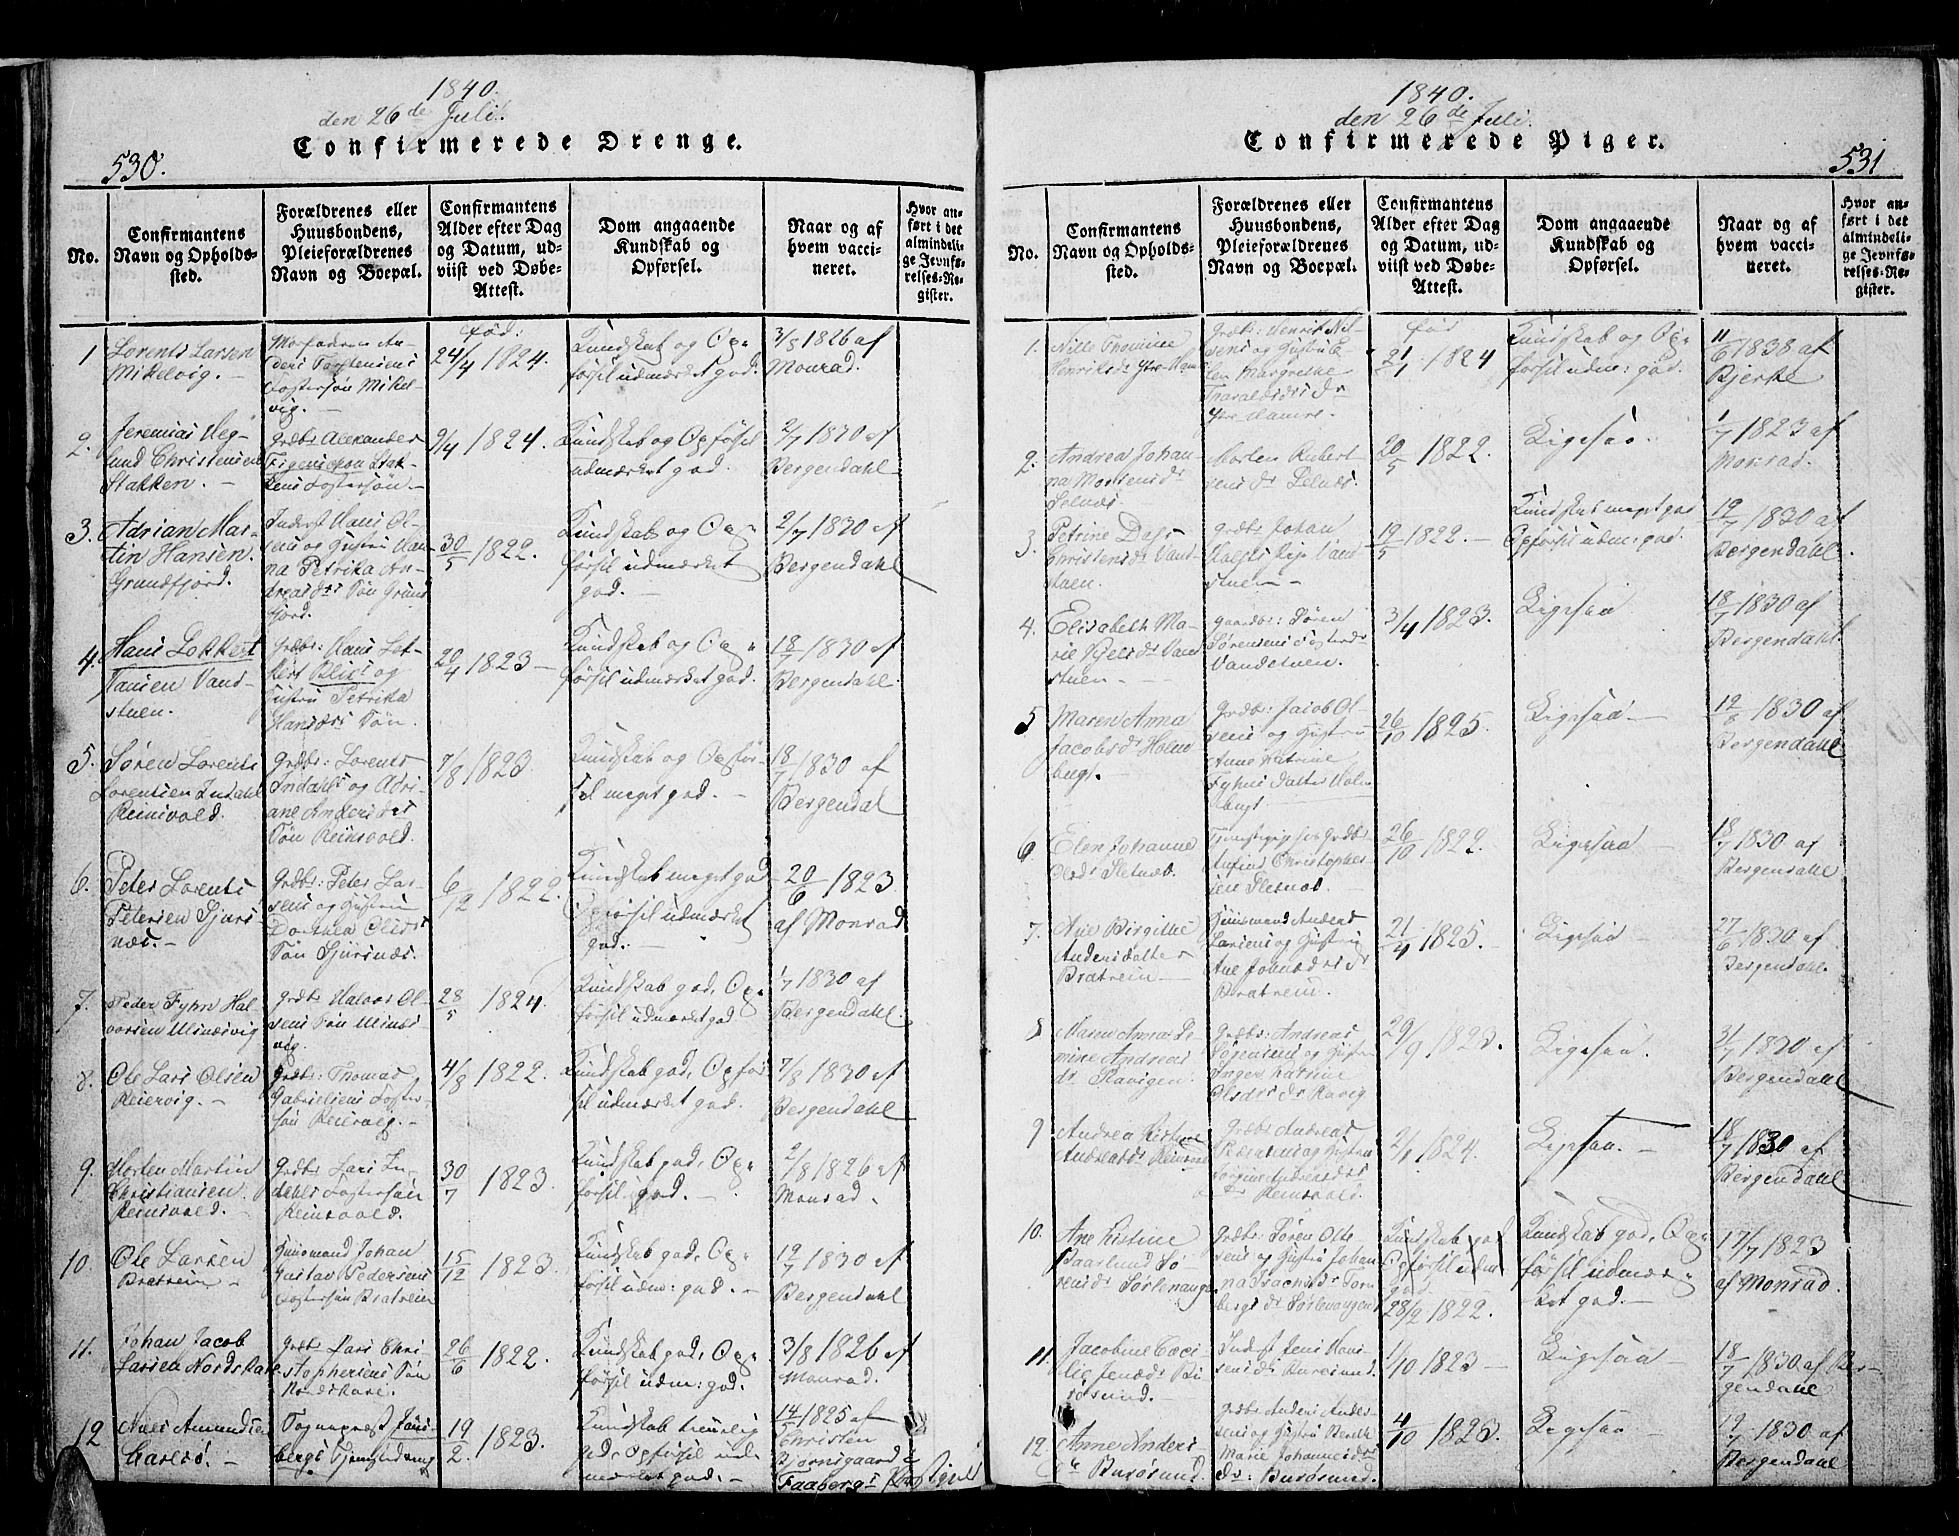 1840.
den 26de Juli.
Confirmerede Drenge.
530.
No.
Confirmantens
Navn og Opholds-
sted.
Forældrenes eller
Huusbondens,
Pleieforældrenes
Navn og Boepæl.
Confirmantens
Alder efter Dag
og Datum, ud-
viist ved Døbe-
Attest.
Dom angaaende
Kundskab og
Opførsel.
Naar og af
hvem vacci-
neret.
Hvor an-
ført i det
almindeli-
ge Jevnfø-
relses-Re-
gister.
1
Lorents Larsen
Mikelvig.
Morfaderen An-
ders Torstensens
Fostersøn Mikel-
vig.
fød:
24/4 1824.
Kundskab og Op-
førsel udmærket god.
3/8 1826 af
Monrad.
2.
Jeremias Heg-
lund Christensen
Stakken.
Grdbr Alexander
Stak-
kens Fostersøn
9/4 1824.
Kundskab og Opførsel
udmærket god.
2/7 1830 af
Bergendahl
3.
Adrian Mar-
tin Hansen.
Grundfjord.
Inderst Hans Ol-
sens og Hustru Han-
na Petrika An-
dreasdrs Søn Grund-
fjord.
30/5 1822.
Kundskab og Op-
førsel udmærket
god.
2/7 1830 af
Bergendahl
4.
Hans Lokkert
Hansen Vand-
stuen.
Grdbr: Hans Lok-
kert Blix og
Hustru Petrika
Hansdrs Søn.
20/4 1823
Kundskab og Op-
førsel udmærket god.
18/7 1830 af
Bergendahl.
5.
Søren Lorents
Lorentsen Indahl
Reinsvold.
Grdbr: Lorents
Indahls og Adri-
ane Andersdrs
Søn Reinsvold.
7/8 1823
Kundskab og Opfør-
sel meget god.
18/7 1830 af
Bergendal
6.
Peter Lorents
Petersen Sjurs-
næs.
Grdbr: Peter Lar-
sens og Hustru
Dorthea Olsdrs
Søn Sjursnæs.
6/12 1822.
Kundskab meget god
Opførsel udmærket
god.
20/6 1823
af Monrad
7.
Peder Fyhn Hal-
vorsen Ulnæsvig
Grdbr Halvor Ol-
sens Søn Ulnæs-
vig.
28/5 1824.
Kundskab god, Op-
førsel udmærket god
1/7 1830 af
Bergendahl.
8.
Ole Lars Olsen
Reiervig.
Grdbr: Thomas
Gabrielsens Foster-
søn Reiervig.
4/8 1822.
Kundskab god, Opfør-
sel udmærket god.
7/8 1830 af
Bergendahl
9.
Morten Martin
Christiansen
Reinsvold.
Grdbr Lars In-
dahls Fostersøn
Reinsvold.
30/7 1823.
Kundskab god, Op-
førsel god.
2/8 1826 af
Monrad.
10.
Ole Larsen
Bratrein
Huusmand Johan
Gustav Pedersens
Fostersøn Bratrein
15/12 1823.
Kundskab god, Op-
førsel udm: god.
12/7 1830 af
Bergendahl
11.
Johan Jacob
Larsen Nordskare
Grdbr Lars Chri-
stophersens Søn
Nordskare.
26/6 1822.
Kundskab god, Op-
førsel udm: god.
3/8 1826 af
Monrad.
12
Nils Amundsen
Carlsø.
Sogneprest
bergs Tjenestedreng
19/2 1823.
Kundskab temmelig
god, Opførsel ud-
mærket god.
14/5 1825 af
Christen
Bjørnsgaard
Faabergs Præstegield
1840.
den 26de Juli.
Confirmerede Piger.
531
No.
Confirmantens
Navn og Opholds-
sted.
Forældrenes eller
Huusbondens,
Pleieforældrenes
Navn og Boepæl.
Confirmantens
Alder efter Dag
og Datum, ud-
viist ved Døbe-
Attest.
Dom angaaende
Kundskab og
Opførsel.
Naar og af
hvem vacci-
neret.
Hvor an-
ført i det
almindeli-
ge Jevnfø-
relses-Re-
gister.
1.
Nille Thomine
Henriksdr Ytre-Ham-
Grdbr: Henrik Nil-
sens og Hustru E-
len Margrethe
Tharaldsdrs Dr
Ytre Hamre.
fød
21/1 1824
Kundskab og Op-
førsel udm: god.
11/6 1838 af
Bjerke
2.
Andrea Johan-
na Mortensdr
Selnæs
Morten Rubert-
sens Dr Selnæs.
20/5 1822.
Ligesaa.
1/7 1823 af
Monrad.
3.
Petrine Dass
Christensdr Vand-
stuen.
Grdbr Johan
Vand-
stuen
19/5 1822.
Kundskab meget god
Opførsel udm: god.
12/7 1830 af
Bergendahl.
4.
Elisabeth Ma-
rie Vand-
stuen.
Gaardbr: Søren
Sørensens Fosterdr
Vandstuen.
3/4 1823.
Ligesaa
18/7 1830 af
Bergendahl.
5
Maren Anna
Jacobsdr Holm-
bugt.
Grdbr: Jacob Ol-
sens og Hustru
Anne Katrine
Fyhns Datter Holm-
bugt
26/10 1825.
Ligesaa
12/8 1830 af
Bergendahl
6
Elen Johanne
Olsdr Sletnæs.
Tjenestepige hos Grdbr
Anfind Christopher-
sen Sletnæs.
26/10 1822.
Ligesaa
18/7 1830 af
Bergendahl
7.
Ane Birgitte
Andersdatter
Bratrein
Huusmand Anders
Larsens og Hustru
Ane Johnsdrs Dr
Bratrein.
21/4 1825.
Ligesaa
27/6 1830 af
Bergendahl.
8
Maren Anna Pe-
mine Andreas-
dr Ravigen.
Grdbr: Andreas
og Hustru
Inger Katrine
Olsdrs Dr Ravig
29/9 1823.
Ligesaa.
31/7 1830 af
Bergendahl
9
Andrea Kistine
Andreasdr Reinsvold
Grdbr Andreas
og Hustru
Jørgine Andreasdrs
Dr Reinsvold.
2/1 1824.
Ligesaa.
18/7 1830 af
Bergendahl
10.
Ane Kistine
Baarlund Sø-
rensdr Sørlenangen
Grdbr: Søren Ole-
sens og Hustru Johan-
na
bergs Dr Sørlenangen
Kundskab god
Opførsel udm
god
28/2 1822.
Kundskab god, Op-
førsel udmær-
ket god.
17/7 1823
af Monrad.
11.
Jacobine Cæci-
lie Jensdr Bu-
røsund.
Inderst Jens Han-
sens Dr Burøsund.
1/10 1823
Ligesaa
18/7 1830 af Ber-
gendahl
12.
Anne Anders-
dr Burøsund.
Grdbr Anders Ander-
sens og Hustru
Marie Johannesdrs
Dr: Burøsund.
4/10 1823.
Ligesaa
12/7 1830 af
Bergendahl